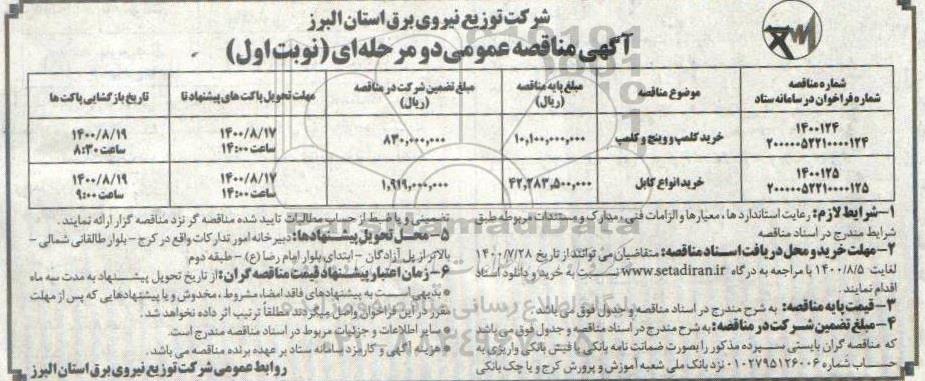 شرکت توزیع نیروی برق استان البرز
آگهی مناقصه عمومی دو مرحله‌ای (نوبت اول)
شماره مناقصه
شماره فراخوان در سامانه ستاد
موضوع مناقصه
مبلغ پایه مناقصه
(ریال)
مبلغ تضمین شرکت در مناقصه
(ریال)
مهلت تحویل پاکت های پیشنهاد تا
تاریخ بازگشایی پاکت ها
۱۴۰۰۱۲۴
۲۰۰۰۰۰۵۲۲۱۰۰۰۰۱۲۴
خرید کلمپ و وینچ و کلمپ
۱۰,۱۰۰,۰۰۰,۰۰۰
۸۳۰,۰۰۰,۰۰۰
۱۴۰۰/۸/۱۷
ساعت ۱۴:۰۰
۱۴۰۰/۸/۱۹
ساعت ۸:۳۰
۱۴۰۰۱۲۵
۲۰۰۰۰۰۵۲۲۱۰۰۰۰۱۲۵
خرید انواع کابل
۴۲,۲۸۳,۵۰۰,۰۰۰
۱,۹۱۹,۰۰۰,۰۰۰
۱۴۰۰/۸/۱۷
ساعت ۱۴:۰۰
۱۴۰۰/۸/۱۹
ساعت ۹:۰۰
۱-شرایط لازم: رعایت استاندارد ها، معیارها و الزامات فنی، مدارک و مستندات مربوطه طبق
شرایط مندرج در اسناد مناقصه
۲-مهلت خرید و محل دریافت اسناد مناقصه: متقاضیان می توانند از تاریخ ۱۴۰۰/۷/۲۸
لغایت ۱۴۰۰/۸/۵ با مراجعه به درگاه www.setadiran.ir نسبت به خرید و دانلود اسناد
اقدام نمایند.
۳-قیمت پایه مناقصه: به شرح مندرج در اسناد مناقصه و جدول فوق می باشد
۴-مبلغ تضمین شرکت در مناقصه: به شرح مندرج در اسناد مناقصه و جدول فوق می باشد
که مناقصه گران بایستی سپرده مذکور را بصورت ضمانت نامه بانکی یا فیش بانکی واریزی به
حساب شماره ۰۱۰۲۷۹۵۱۲۶۰۰۶ نزد بانک ملی شعبه آموزش و پرورش کرج و یا چک بانکی
تضمینی و یا ضبط از حساب مطالبات تایید شده مناقصه گر نزد مناقصه گزار ارائه نمایند.
۵- محل تحویل پیشنهادها: دبیرخانه امور تدارکات واقع در کرج - بلوار طالقانی شمالی -
بالاتر از پل آزادگان - ابتدای بلوار امام رضا (ع) - طبقه دوم
۶- زمان اعتبار پیشنهاد قیمت مناقصه گران: از تاریخ تحویل پیشنهاد به مدت سه ماه
* بدیهی است به پیشنهادهای فاقد امضا، مشروط، مخدوش و یا پیشنهادهایی که پس از مهلت
مقرر در این فراخوان واصل میگردند مطلقا ترتیب اثر داده نخواهد شد.
* سایر اطلاعات و جزئیات مربوط در اسناد مناقصه مندرج است.
* هزینه آگهی و کارمزد سامانه ستاد بر عهده برنده مناقصه می باشد.
روابط عمومی شرکت توزیع نیروی برق استان البرز